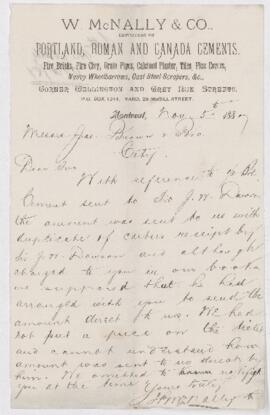 W. McNALLY & CO.,
IMPORTERS OF
PORTLAND, ROMAN AND CANADA CEMENTS,
Fire Bricks, Fire Clay, Drain Pipes, Calcined Plaster, Flue Covers,
Navvy Wheelbarrows, Cast Steel Scrapers, &c.,
CORNER WELLINGTON AND GREY NUN STREETS,
P.O. BOX 1244. YARD, 29 McGILL STREET.
Montreal, Nov 5th
Messrs Jas. Brown & Bro
City
Dear Sirs
With reference to 10 Bbl
Cement sent to Sir J. W. Dawson
the amount was sent to us with
duplicate of carters receipt by
Sir J. W. Dawson and although
charged to you in our books
we supposed that he had
arranged with you to send the
amount direct to us. We had
not put a price on the
and cannot understand how
amount was sent to us direct by
him. We omitted to notify
you at the time Yours truly
W McNally